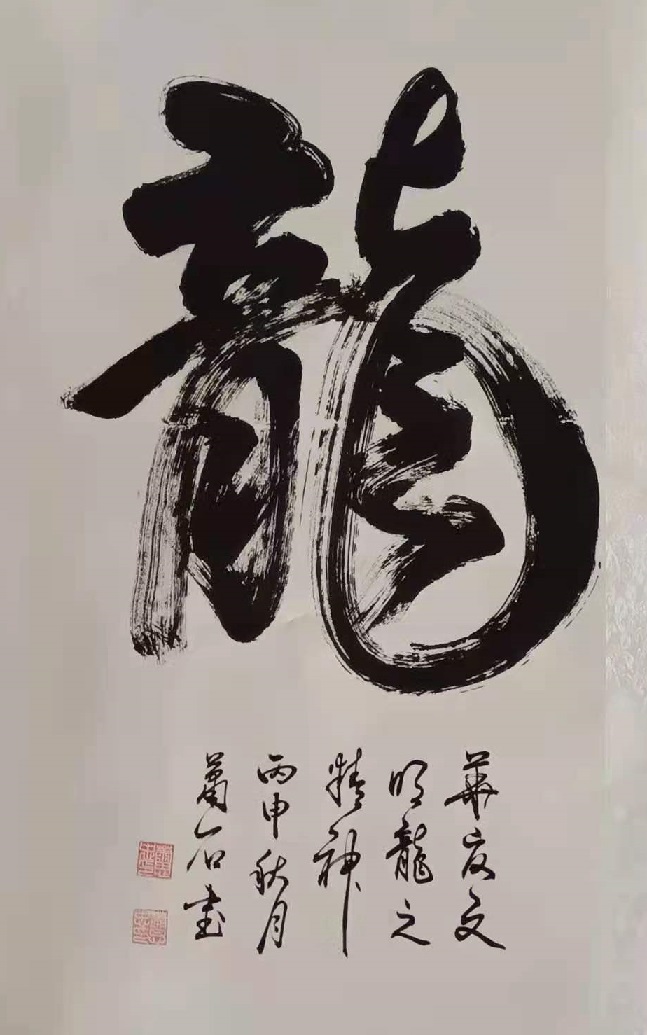 龍
華夏文
明龍之
精神
丙申秋月
萬石書